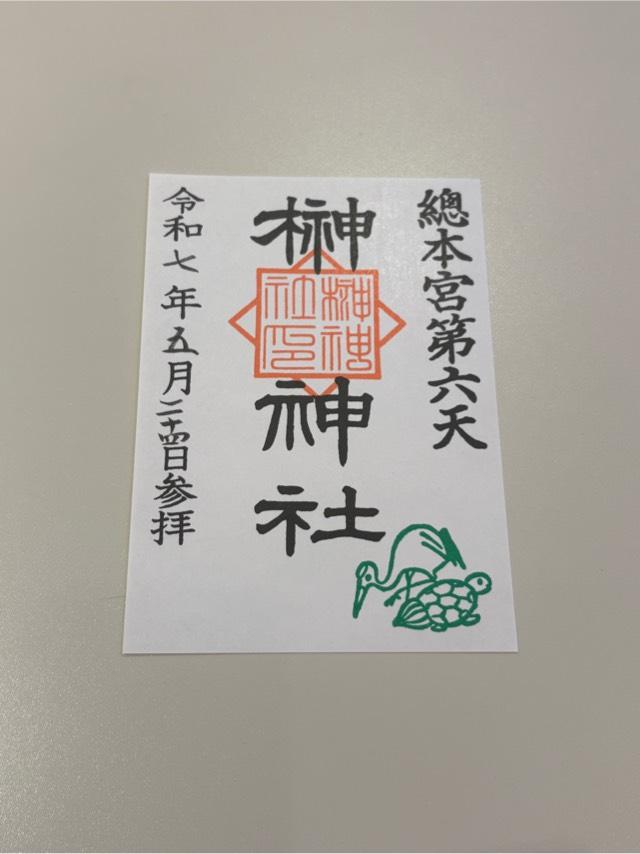 總本宮第六天
榊神社
榊神
社印
令和七年五月二十四日参拝